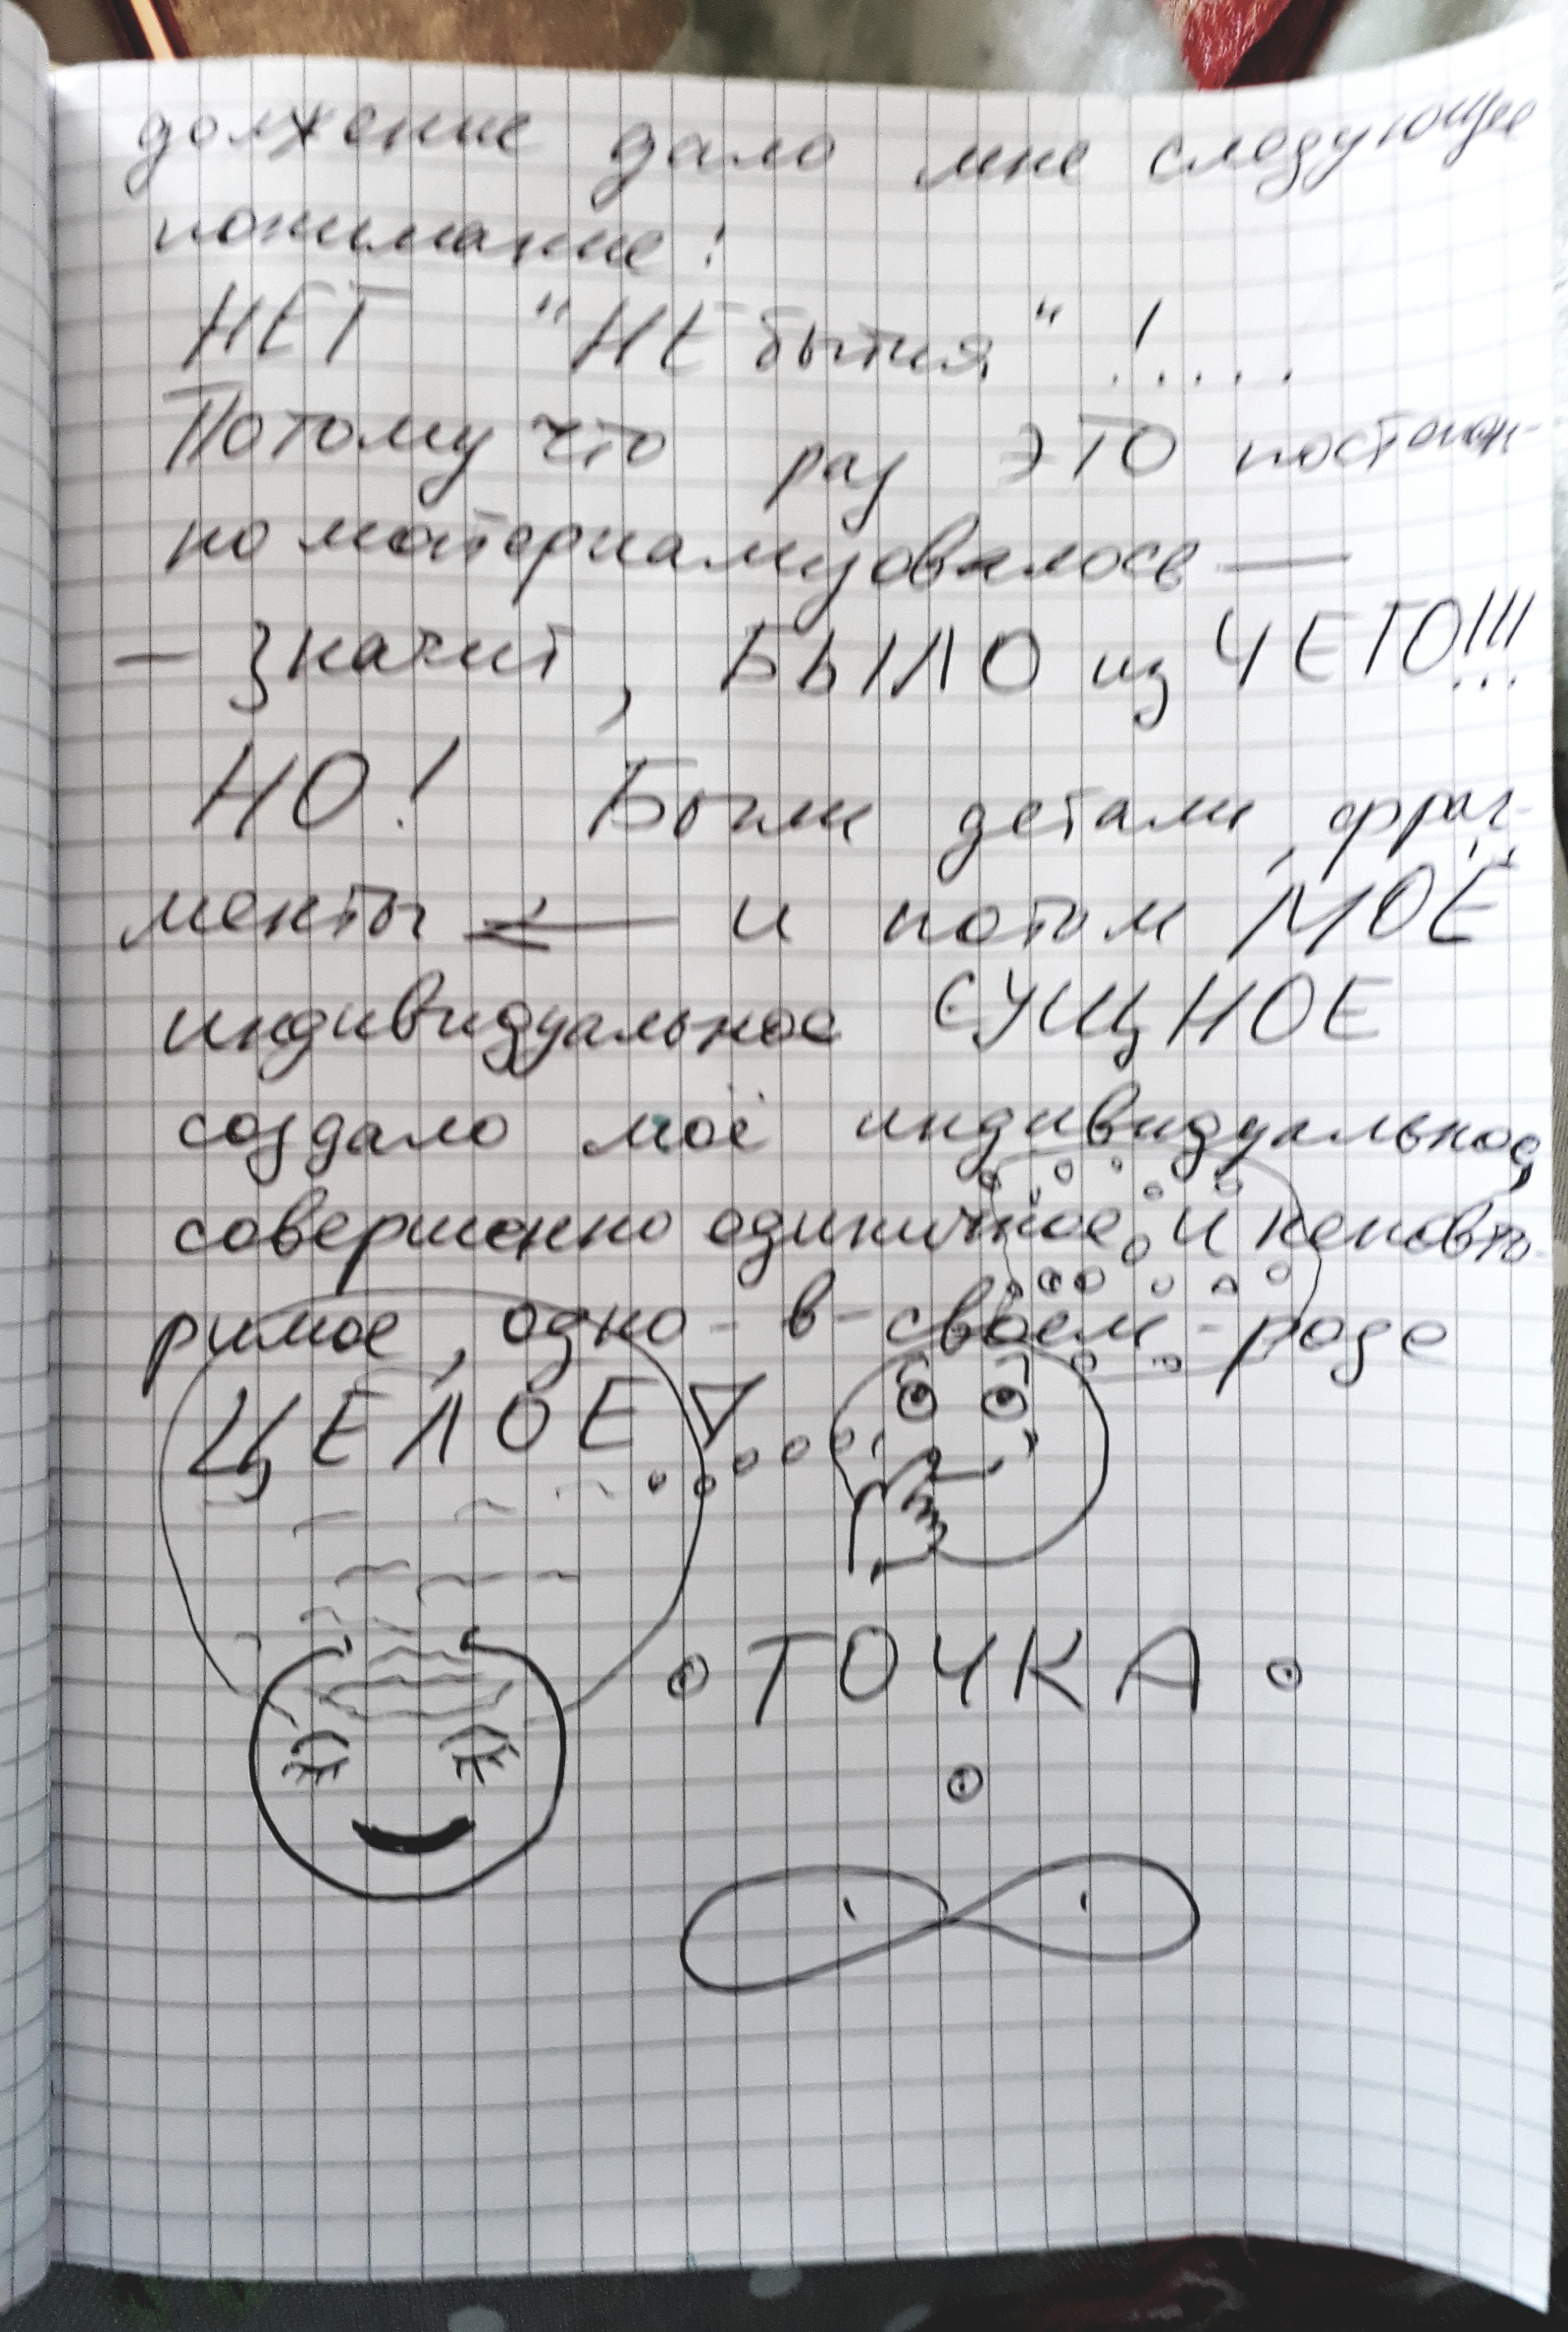 должение дало мне следующее
понимание:
НЕТ "НЕ бытия" !.....
Потому что раз ЭТО постоян-
но материализовалось —
— Значит, БЫЛО из ЧЕГО!!!...
НО! Были детали, фраг-
менты — и потом МОЁ
индивидуальное СУЩНОЕ
создало моё индивидуальное,
совершенно единичное и неповто-
римое, одно-в-своём-роде
ЦЕЛОЕ
ТОЧКА